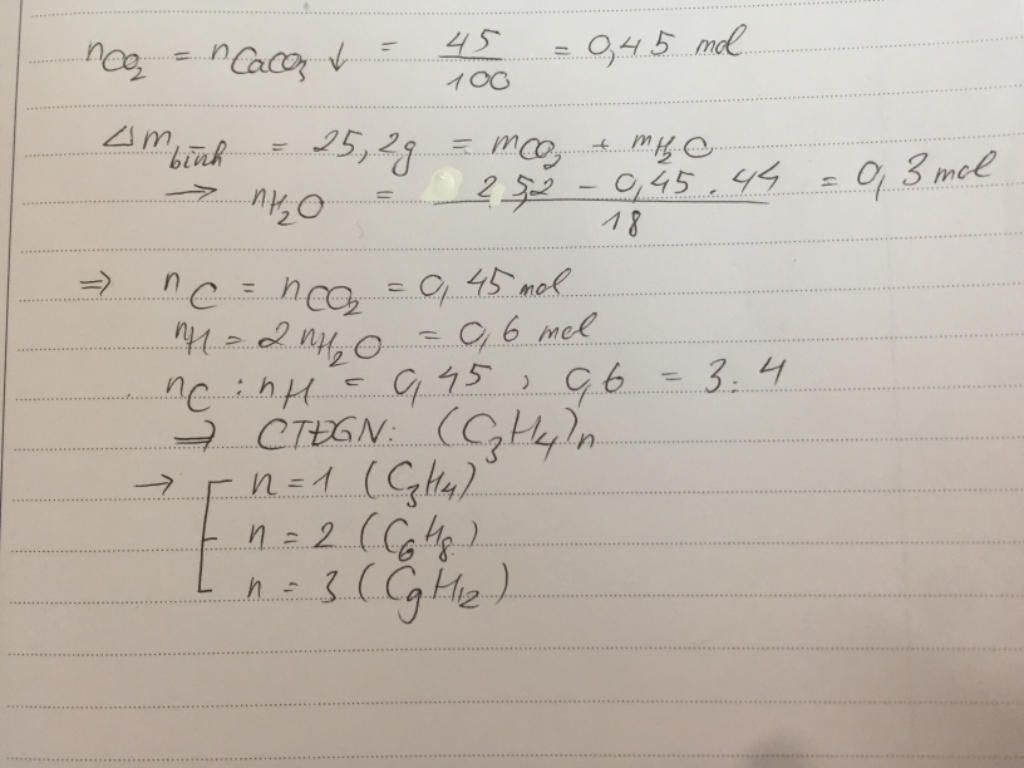 nCO₂ = nCaCO₃ ↓ = 45/100 = 0,45 mol
Δm bình = 25,2g = mCO₂ + mH₂O
→ nH₂O = (25,2 - 0,45 . 44)/18 = 0,3 mol
⇒ nC = nCO₂ = 0,45 mol
nH = 2nH₂O = 0,6 mol
nC : nH = 0,45 : 0,6 = 3 : 4
⇒ CTĐGN: (C₃H₄)n
→ [ n = 1 (C₃H₄)
n = 2 (C₆H₈)
n = 3 (C₉H₁₂)